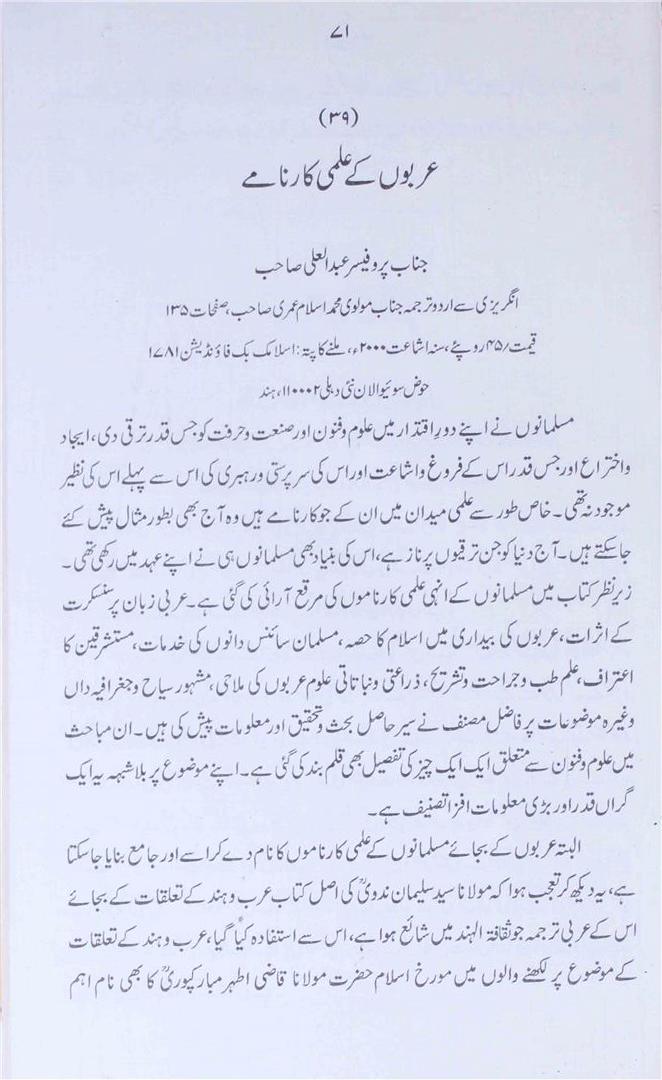 ۷۱
(۳۹)
عربوں کے علمی کارنامے
جناب پروفیسر عبدالعلی صاحب
انگریزی سے اردو ترجمہ جناب مولوی محمد اسلام عمری صاحب، صفحات ۱۳۵
قیمت ؍۴۵ روپئے، سنہ اشاعت ۲۰۰۰ء، ملنے کا پتہ: اسلامک بک فاؤنڈیشن ۱۷۸۱
حوض سوئیوالان نئی دہلی ۱۱۰۰۰۲، ہند
مسلمانوں نے اپنے دور اقتدار میں علوم وفنون اور صنعت وحرفت کو جس قدر ترقی دی، ایجاد
واختراع اور جس قدر اس کے فروغ واشاعت اور اس کی سرپرستی ورہبری کی اس سے پہلے اس کی نظیر
موجود نہ تھی۔ خاص طور سے علمی میدان میں ان کے جو کارنامے ہیں وہ آج بھی بطور مثال پیش کئے
جاسکتے ہیں۔ آج دنیا کو جن ترقیوں پر ناز ہے، اس کی بنیاد بھی مسلمانوں ہی نے اپنے عہد میں رکھی تھی۔
زیر نظر کتاب میں مسلمانوں کے انہی علمی کارناموں کی مرقع آرائی کی گئی ہے۔ عربی زبان پر سنسکرت
کے اثرات، عربوں کی بیداری میں اسلام کا حصہ، مسلمان سائنس دانوں کی خدمات، مستشرقین کا
اعتراف، علم طب وجراحت وتشریح، ذراعتی ونباتاتی علوم عربوں کی ملاحی، مشہور سیاح وجغرافیہ داں
وغیرہ موضوعات پر فاضل مصنف نے سیر حاصل بحث وتحقیق اور معلومات پیش کی ہیں۔ ان مباحث
میں علوم وفنون سے متعلق ایک ایک چیز کی تفصیل بھی قلم بند کی گئی ہے۔ اپنے موضوع پر بلاشبہہ یہ ایک
گراں قدر اور بڑی معلومات افزا تصنیف ہے۔
البتہ عربوں کے بجائے مسلمانوں کے علمی کارناموں کا نام دے کر اسے اور جامع بنایا جاسکتا
ہے، یہ دیکھ کر تعجب ہوا کہ مولانا سید سلیمان ندویؒ کی اصل کتاب عرب وہند کے تعلقات کے بجائے
اس کے عربی ترجمہ جو ثقافۃ الہند میں شائع ہوا ہے، اس سے استفادہ کیا گیا، عرب وہند کے تعلقات
کے موضوع پر لکھنے والوں میں مورخ اسلام حضرت مولانا قاضی اطہر مبارکپوریؒ کا بھی نام اہم